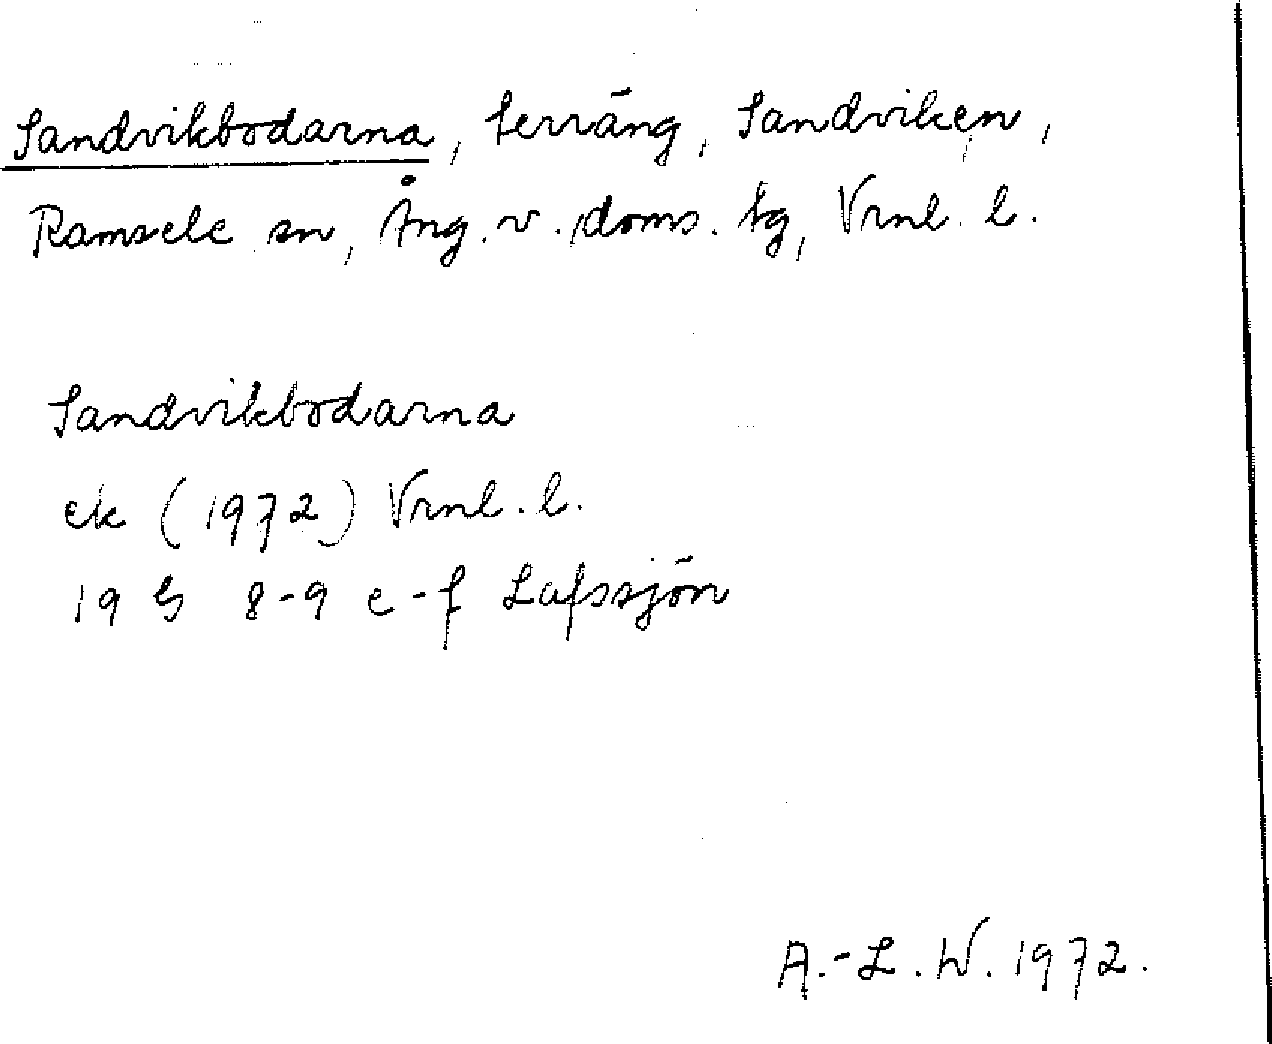 Sandvikbodarna, terräng, Sandviken,
Ramsele sn, Ång. v. doms. tg, Vrnl. l.
Sandvikbodarna
ek (1972) Vrnl. l.
19 G 8-9 e-f Lafssjön
A.-L. W. 1972.